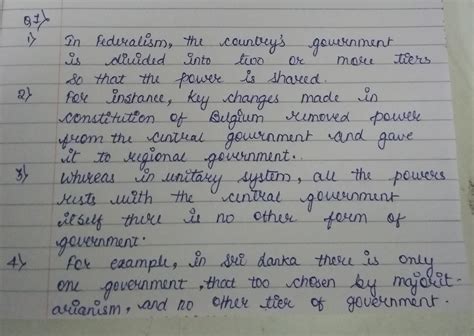 Q1)
1) In Federalism, the country's government
is divided into two or more tiers
so that the power is shared.
2) For instance, key changes made in
constitution of Belgium removed power
from the central government and gave
it to regional government.
3) Whereas in unitary system, all the powers
rests with the central government
itself there is no other form of
government.
4) For example, in Sri Lanka there is only
one government, that too chosen by majorit
arianism, and no other tier of government.